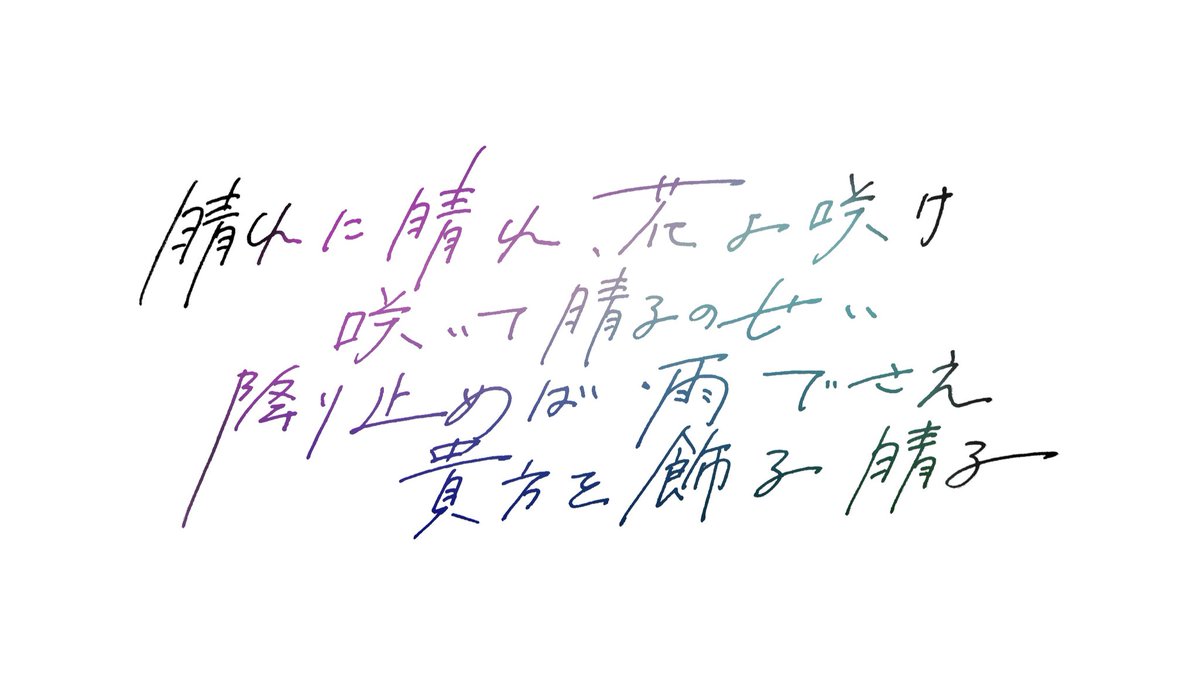 晴れに晴れ、花よ咲け
咲いて晴る子のせい
降り止めば雨でさえ
貴方を飾る晴る